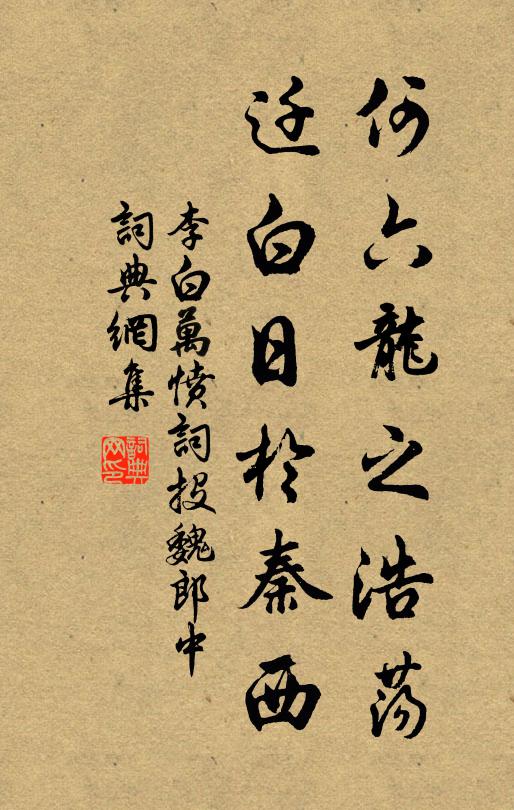 何六龍之浩荡
迁白日於秦西
李白萬憤詞投魏郎中
詞典網集
詞典網印